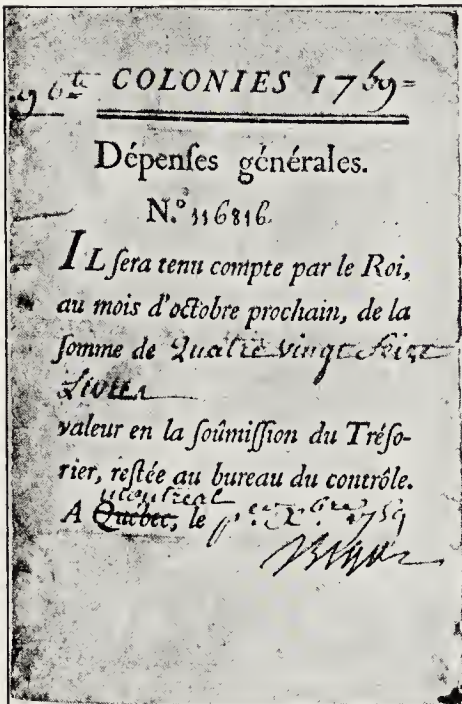 96ᵗᵗ COLONIES 1759=
Dépenſes générales.
N.º 116816.
IL ſera tenu compte par le Roi,
au mois d'octobre prochain, de la
ſomme de Quatre vingt ſeize
Livres
valeur en la ſoûmiſſion du Tréſo-
rier, reſtée au bureau du contrôle.
montreal
A Québec, le p.er X.bre 1759
Bigot